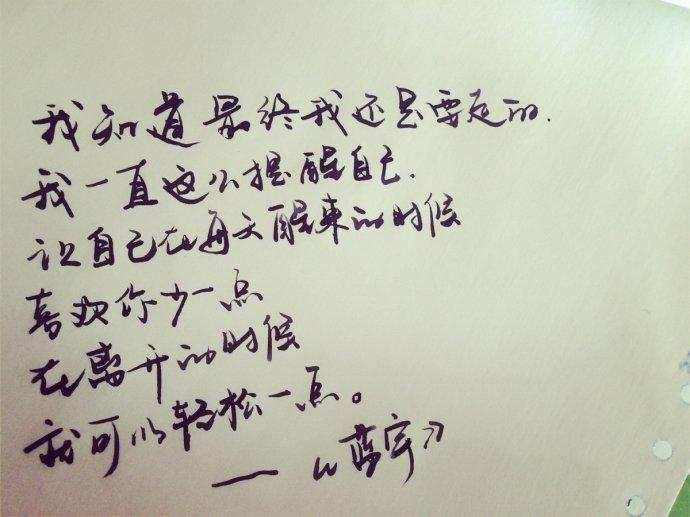 我知道最终我还是要走的.
我一直这么提醒自己.
让自己在每天醒来的时候
喜欢你少一点
在离开的时候
就可以轻松一点。
——《蓝宇》